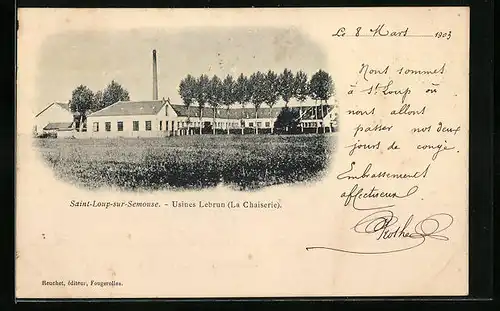 Le 8 Mars 1903
Nous sommes
à St Loup où
nous allons
passer nos deux
jours de congé.
Embrassements
affectueux
Saint-Loup-sur-Semouse. - Usines Lebrun (La Chaiserie).
Reuchet, éditeur, Fougerolles.